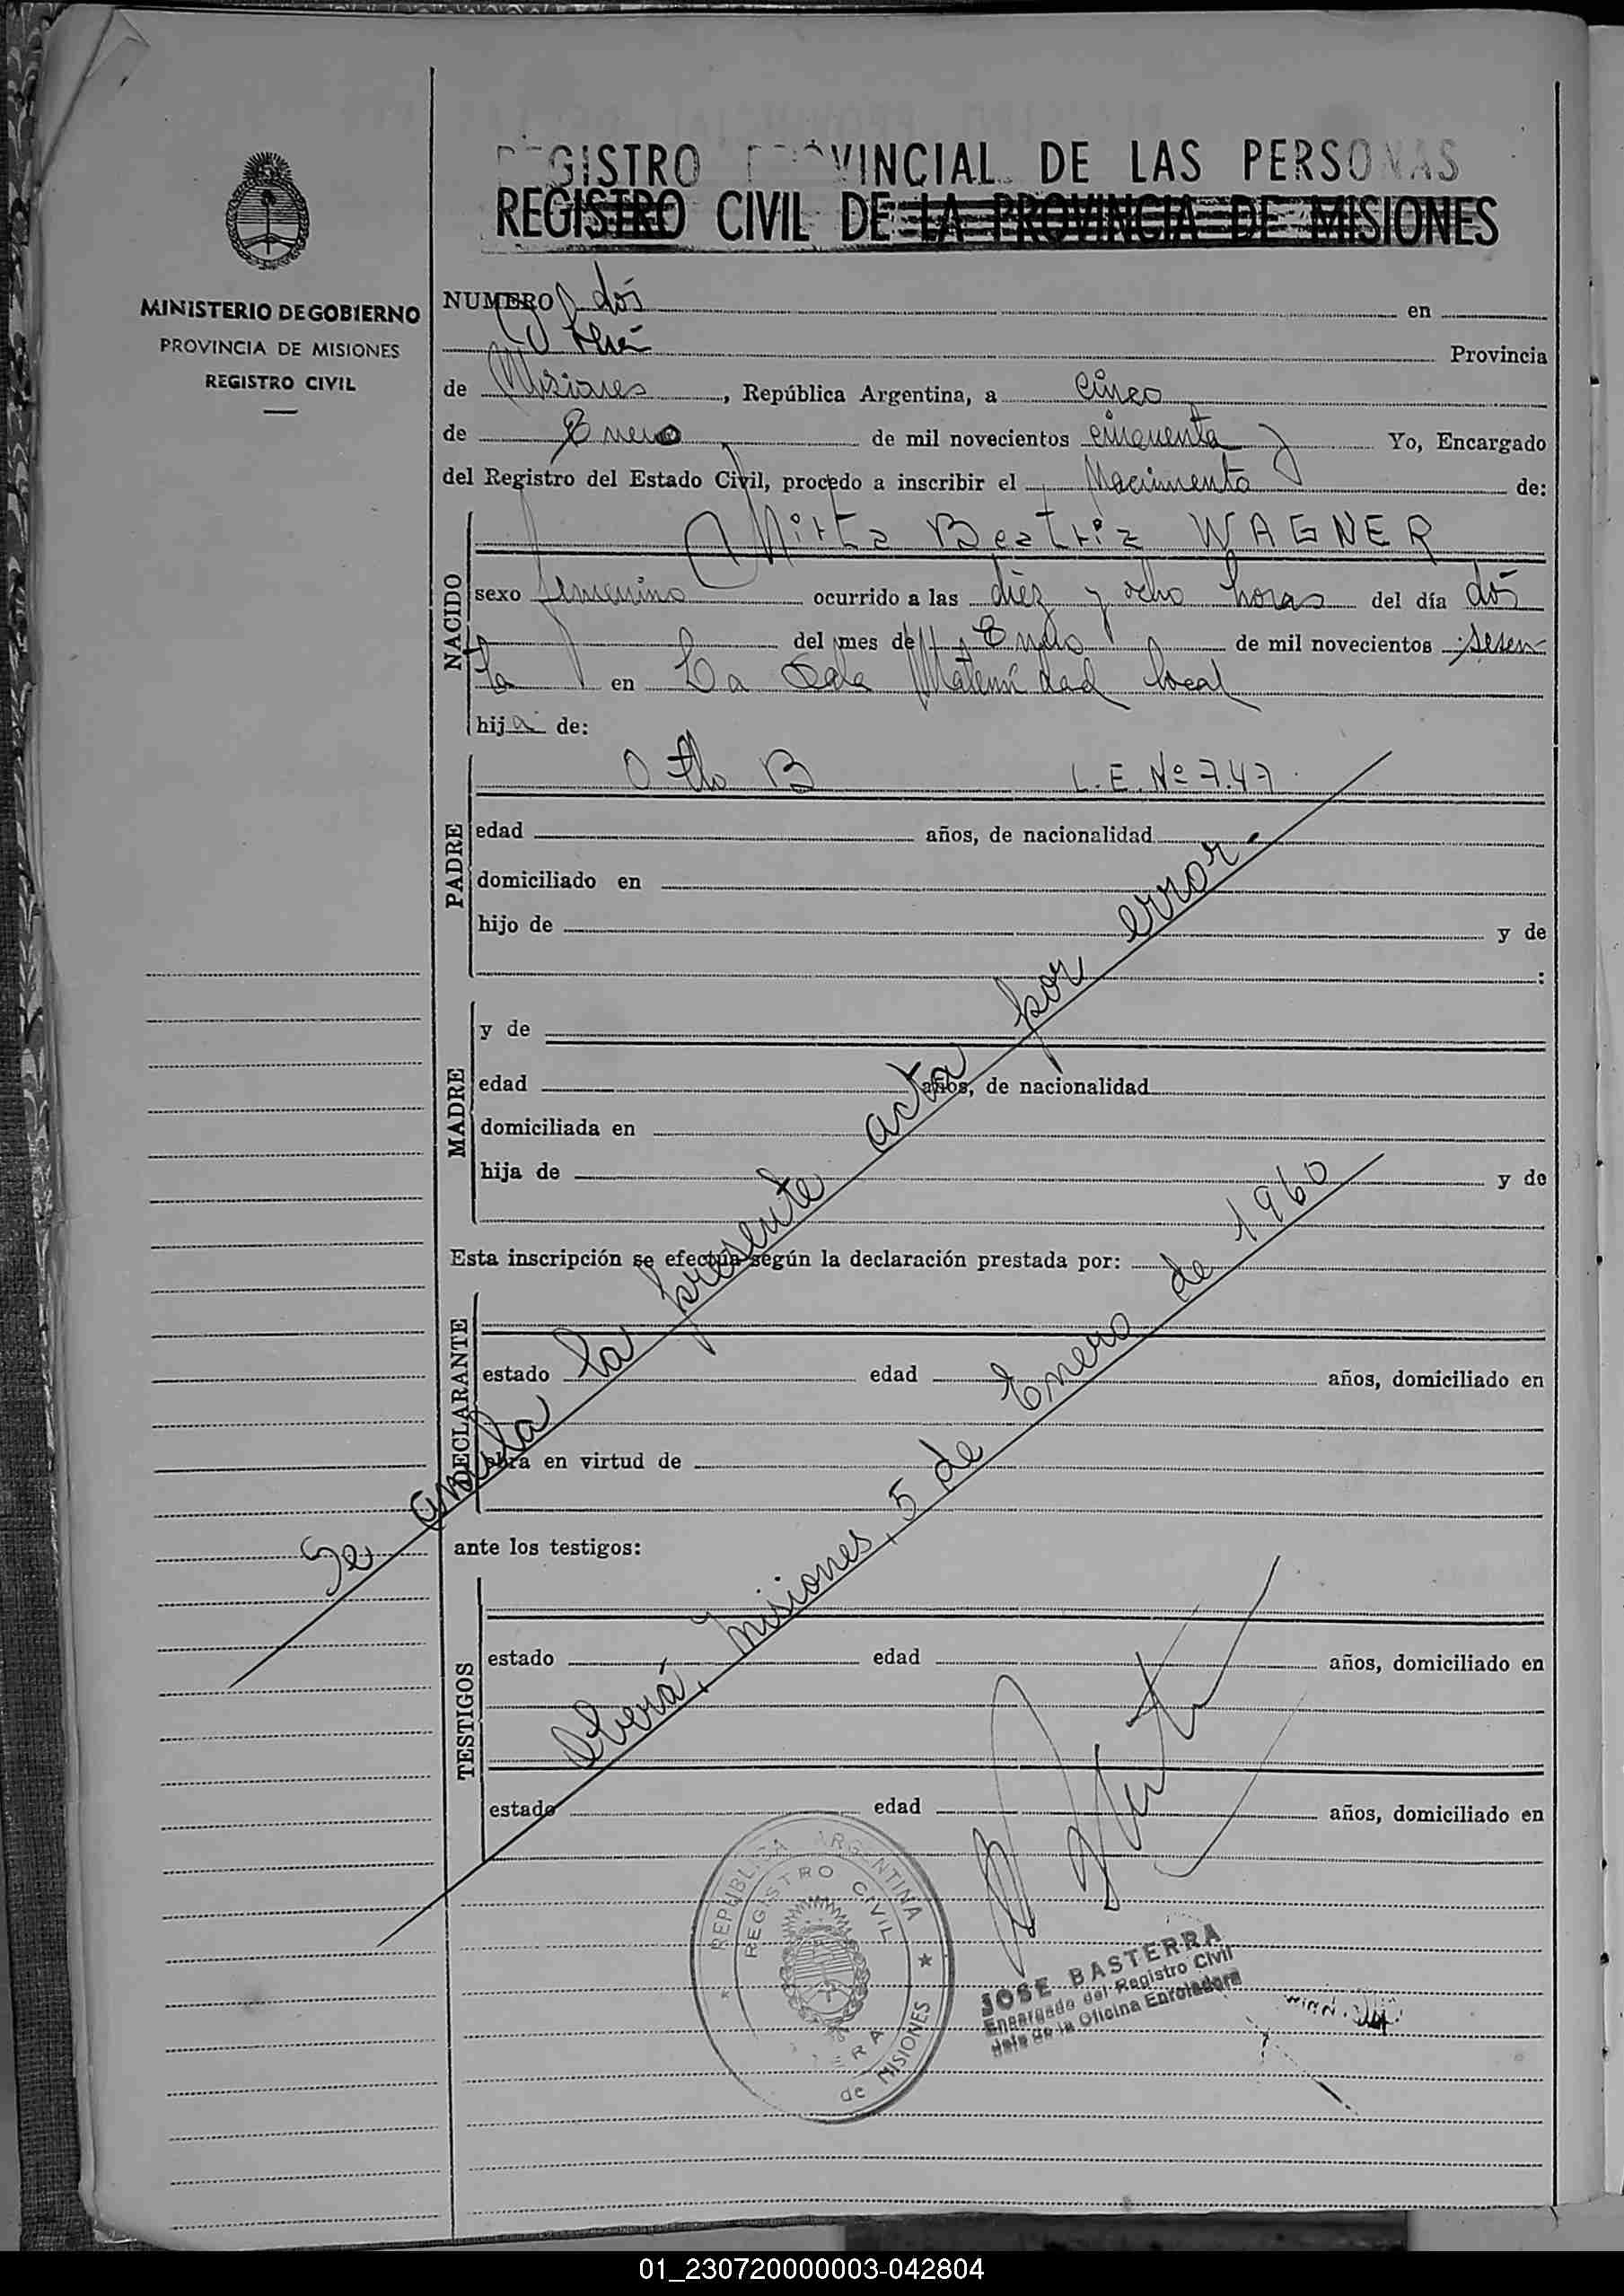 REGISTRO PROVINCIAL DE LAS PERSONAS
REGISTRO CIVIL DE LA PROVINCIA DE MISIONES
MINISTERIO DE GOBIERNO
PROVINCIA DE MISIONES
REGISTRO CIVIL
NUMERO dós en
Oberá Provincia
de Misiones, República Argentina, a cinco
de Enero de mil novecientos cinquenta Yo, Encargado
del Registro del Estado Civil, procedo a inscribir el Nacimiento de:
NACIDO
Mirta Beatriz WAGNER
sexo femenino ocurrido a las diéz y ocho horas del día dós
del mes de Enero de mil novecientos sesen-
ta en La Sala Maternidad local
hija de:
PADRE
Otto B L.E. Nº 7.47
edad años, de nacionalidad
domiciliado en
hijo de y de
:
MADRE
y de
edad años, de nacionalidad
domiciliada en
hija de y de
Esta inscripción se efectúa según la declaración prestada por:
DECLARANTE
estado edad años, domiciliado en
obra en virtud de
ante los testigos:
TESTIGOS
estado edad años, domiciliado en
estado edad años, domiciliado en
Se anula la presente acta por error.
Oberá, Misiones, 5 de Enero de 1960
REPUBLICA ARGENTINA
REGISTRO CIVIL
de MISIONES
JOSE BASTERRA
Encargado del Registro Civil
Jefe de la Oficina Enroladora
01_230720000003-042804